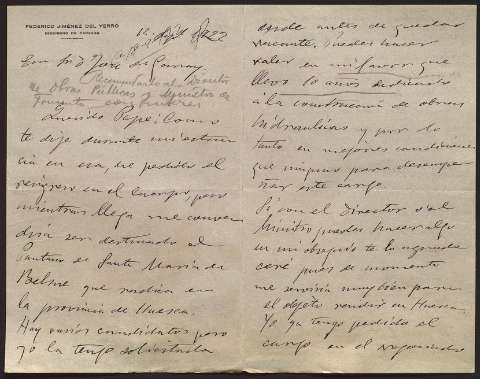 FEDERICO JIMÉNEZ DEL YERRO
INGENIERO DE CAMINOS
12 1922
Exmo Sr D José de
Recomendarlo al Director
de Obras Públicas y Ministro de
Fomento
Querido Pepe: Como
te dije durante mi estan
cia en esa, he pedido el
reingreso en el Cuerpo pero
mientras llega me conven
dría ser destinado al
Pantano de Santa María de
Belsue que radica en
la provincia de Huesca.
Hay varios candidatos pero
yo la tengo solicitada
desde antes de quedar
vacante. Puedes hacer
valer en mi favor que
llevo 10 años dedicado
a la construcción de obras
hidraulicas y por lo
tanto en mejores condiciones
que ninguno para desempe
ñar este cargo.
Si con el Director o el
Ministro puedes hacer algo
en mi obsequio te lo agrade
ceré pues de momento
me serviría muy bien para
el objeto residir en Huesca.
Yo ya tengo pedido el
cargo en el